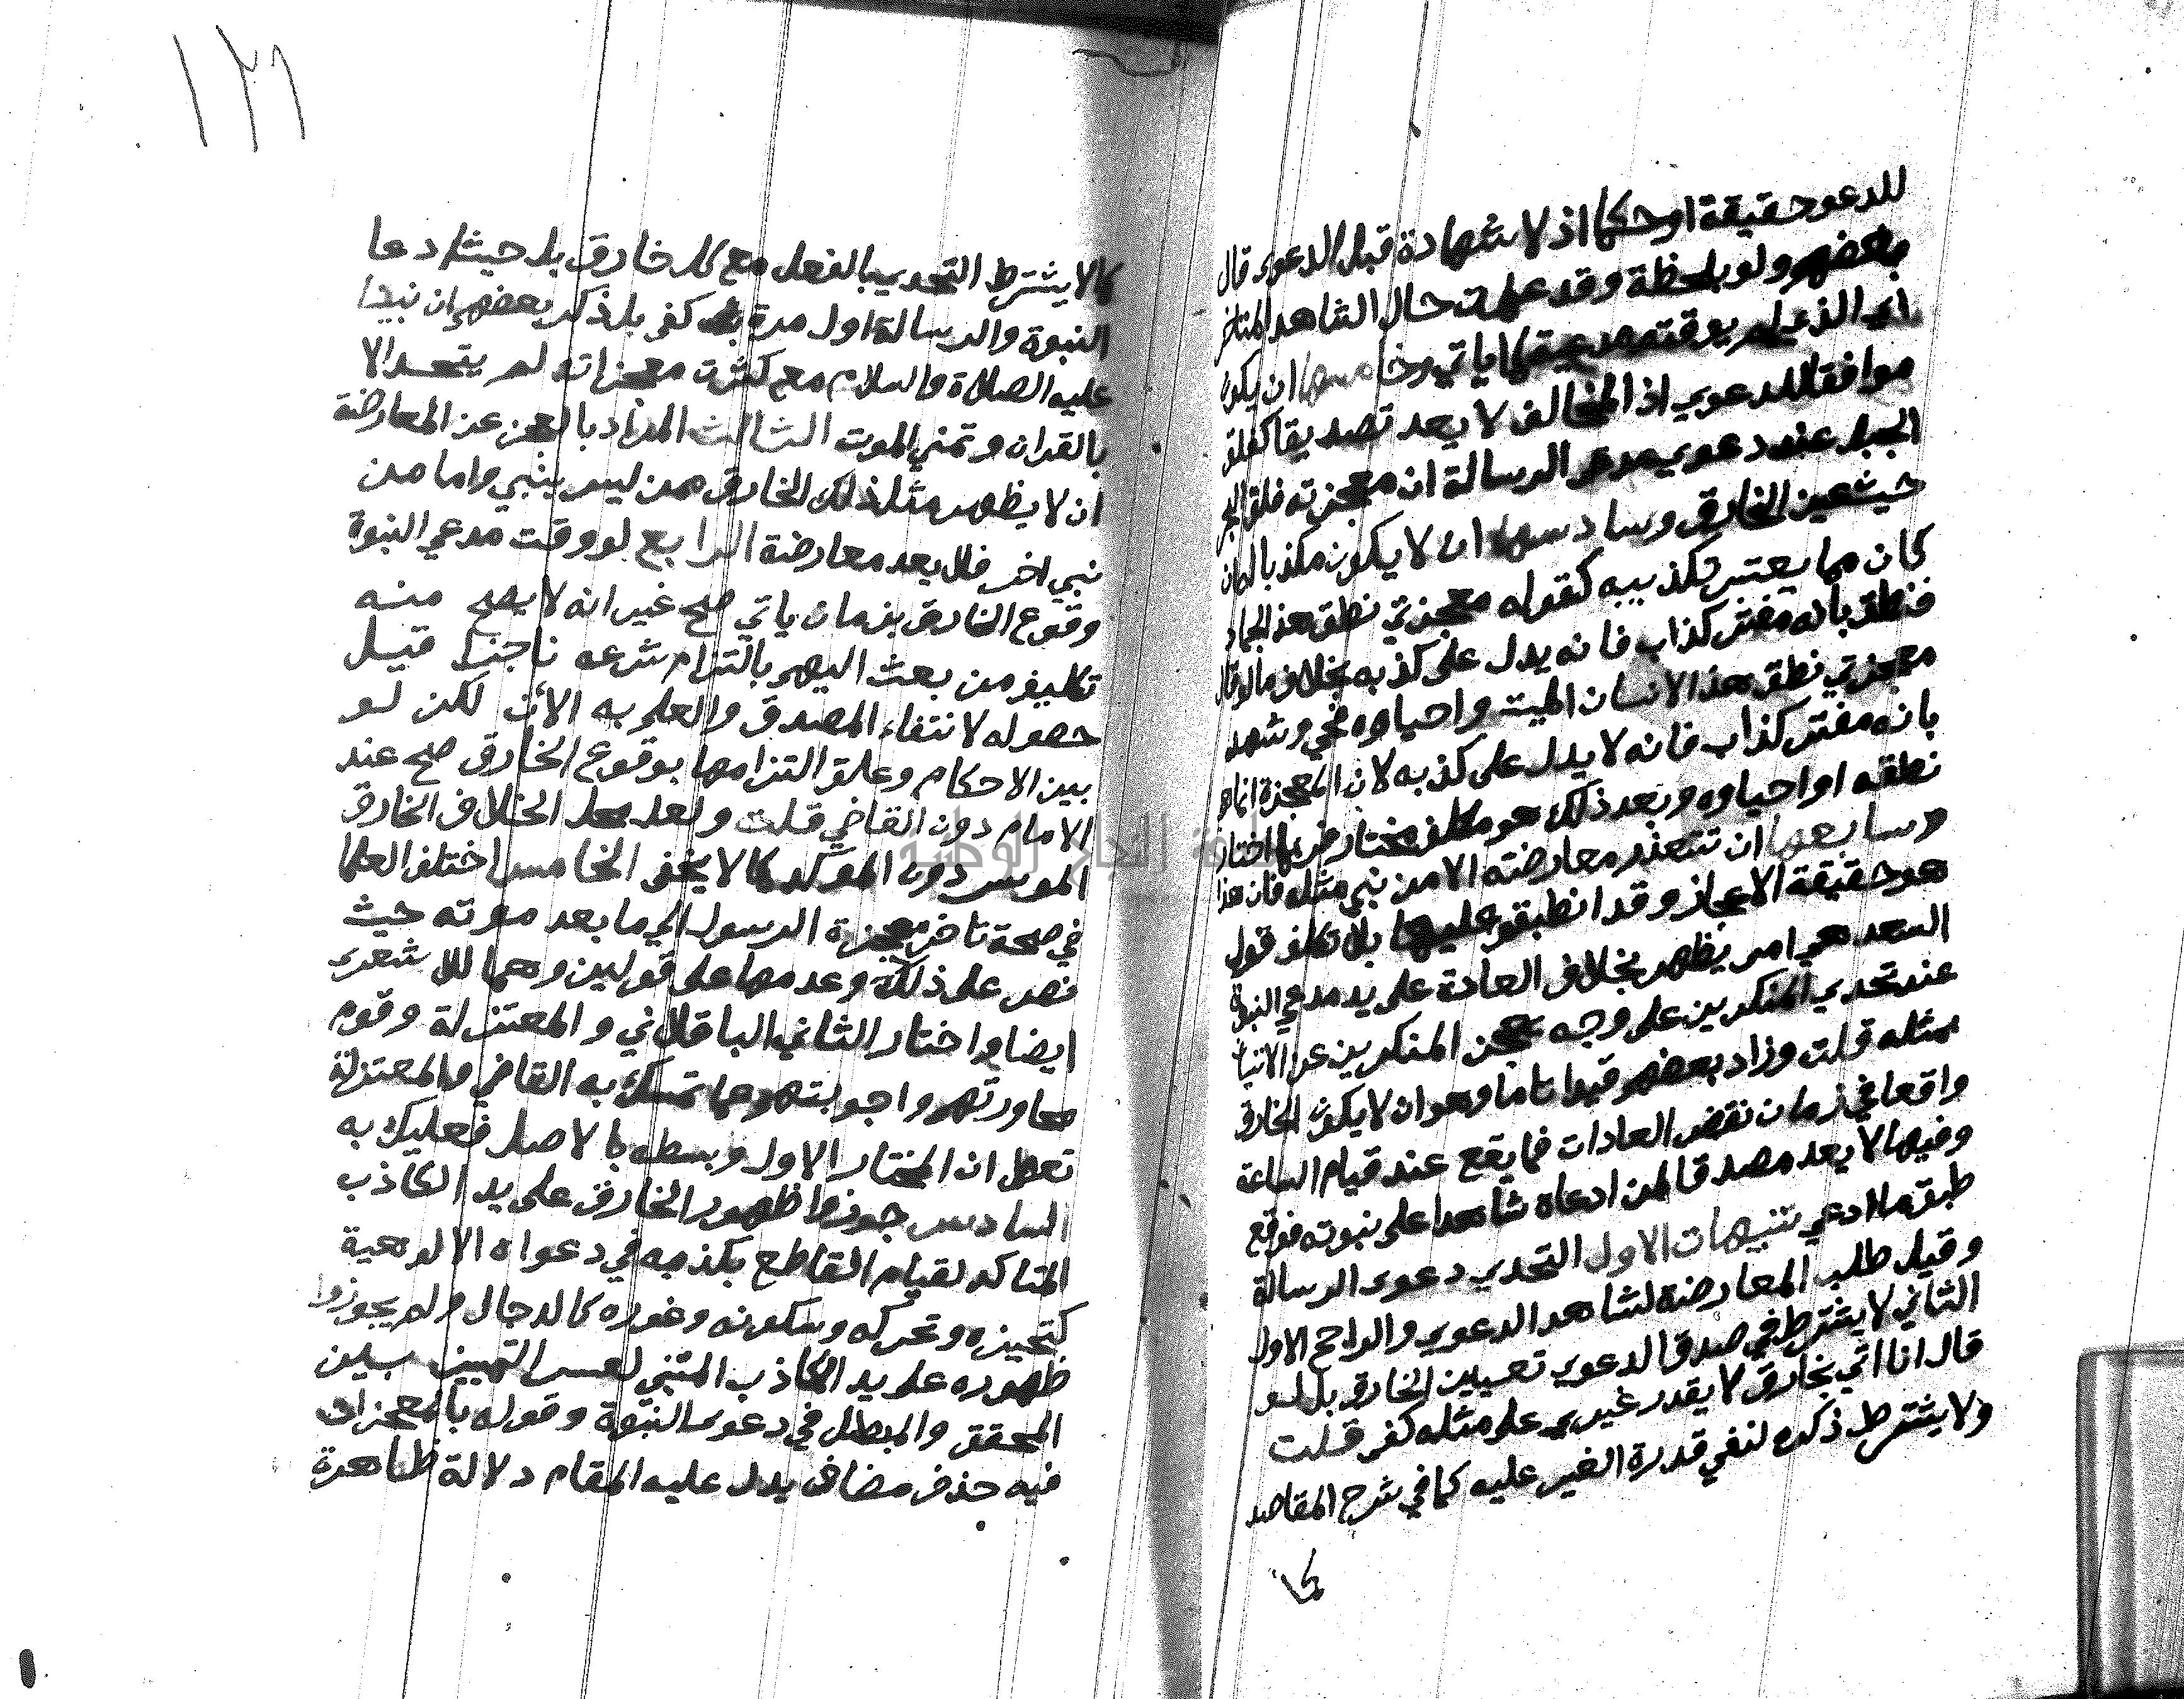 للدعو حقيقة او حكما اذ لا شهادة قبل الدعوى قال
بعضهم ولو بلحظة وقد علمت حال الشاهد المتاخر
اى الذى لم يوقته مدعيه كما ياتي وخامسها ان يكون
موافقا للدعوى اذ المخالف لا يعد تصديقا كفلق
الجبل عند دعوى مدعى الرسالة ان معجزته فلق البحر
حيث عين الخارق وسادسها ان لا يكون مكذبا له ان
كان مما يعتبر تكذيبه كقوله معجزتي نطق هذا الجماد
فنطق بانه مفتر كذاب فانه يدل على كذبه بخلاف ما لو قال
معجزتي نطق هذا الانسان الميت واحياوه فحي وشهد
بانه مفتر كذاب فانه لا يدل على كذبه لان المعجزة انما هو
نطقه او احياوه وبعد ذلك هو مكلف مختار فربما اختار
وسابعها ان تتعذر معارضته الا من نبي مثله فان هذا
هو حقيقة الاعجاز وقد انطبق عليها بلا تكلف قول
السعد هي امر يظهر بخلاف العادة على يد مدعي النبوة
عند تحدي المنكرين على وجه يعجز المنكرين عن الاتيان
بمثله قلت وزاد بعضهم قيدا ثامنا وهو ان لا يكون الخارق
واقعا في زمان نقض العادات فما يقع عند قيام الساعة
وفيها لا يعد مصدقا لمن ادعاه شاهدا على نبوته فوقع
طبق ما ادعي تنبيهات الاول التحدي دعوى الرسالة
وقيل طلب المعارضة لشاهد الدعوي والراجح الاول
الثاني لا يشترط في صدق الدعوي تعيين الخارق بل لو
قال انا اتي بخارق لا يقدر غيري على مثله كفى قلت
ولا يشترط ذكره لنفي قدرة الغير عليه كما في شرح المقاصد
كما
١٢٦
كما لا يشترط التحدي بالفعل مع كل خارق بل حيث ادعا
النبوة والرسالة اول مرة كفى بل ذكر بعضهم ان نبينا
عليه الصلاة والسلام مع كثرت معجزاته لم يتحد الا
بالقران وتمني الموت الثالث المراد بالعجز عن المعارضة
ان لا يظهر مثل ذلك الخارق ممن ليس بنبي واما من
نبي اخر فلا يعد معارضة الرابع لو وقت مدعي النبوة
وقوع الخارق بزمان ياتي صح غير انه لا يصح منه
تكليف من بعث اليهم بالتزام شرعه ناجزا قبل
حصوله لانتفاء المصدق والعلم به الان لكن لو
بين الاحكام وعلق التزامها بوقوع الخارق صح عند
الامام دون القاضي قلت ولعل محل الخلاف الخارق
الموسس دون الموكد كما لا يخفى الخامس اختلف العلما
في صحة تاخر معجزة الرسول الي ما بعد موته حيث
نص على ذلك وعدمها على قولين وهما للاشعرى
ايضا واختار الثاني الباقلاني والمعتزلة وقوم
محاورتهم واجوبتهم عما تمسك به القاضي والمعتزلة
تعلل ان المختار الاول وبسطه بالاصل فعليك به
السادس جوزوا ظهور الخارق على يد الكاذب
المتاله لقيام القاطع بكذبه في دعواه الالوهية
كتحيزه وتحركه وسكونه وعوره كالدجال ولم يجوزوا
ظهوره على يد الكاذب المتنبي لعسر التمييز بين
المحقق والمبطل في دعوى النبوة وقوله بالمعجزات
فيه حذف مضاف يدل عليه المقام دلالة ظاهرة